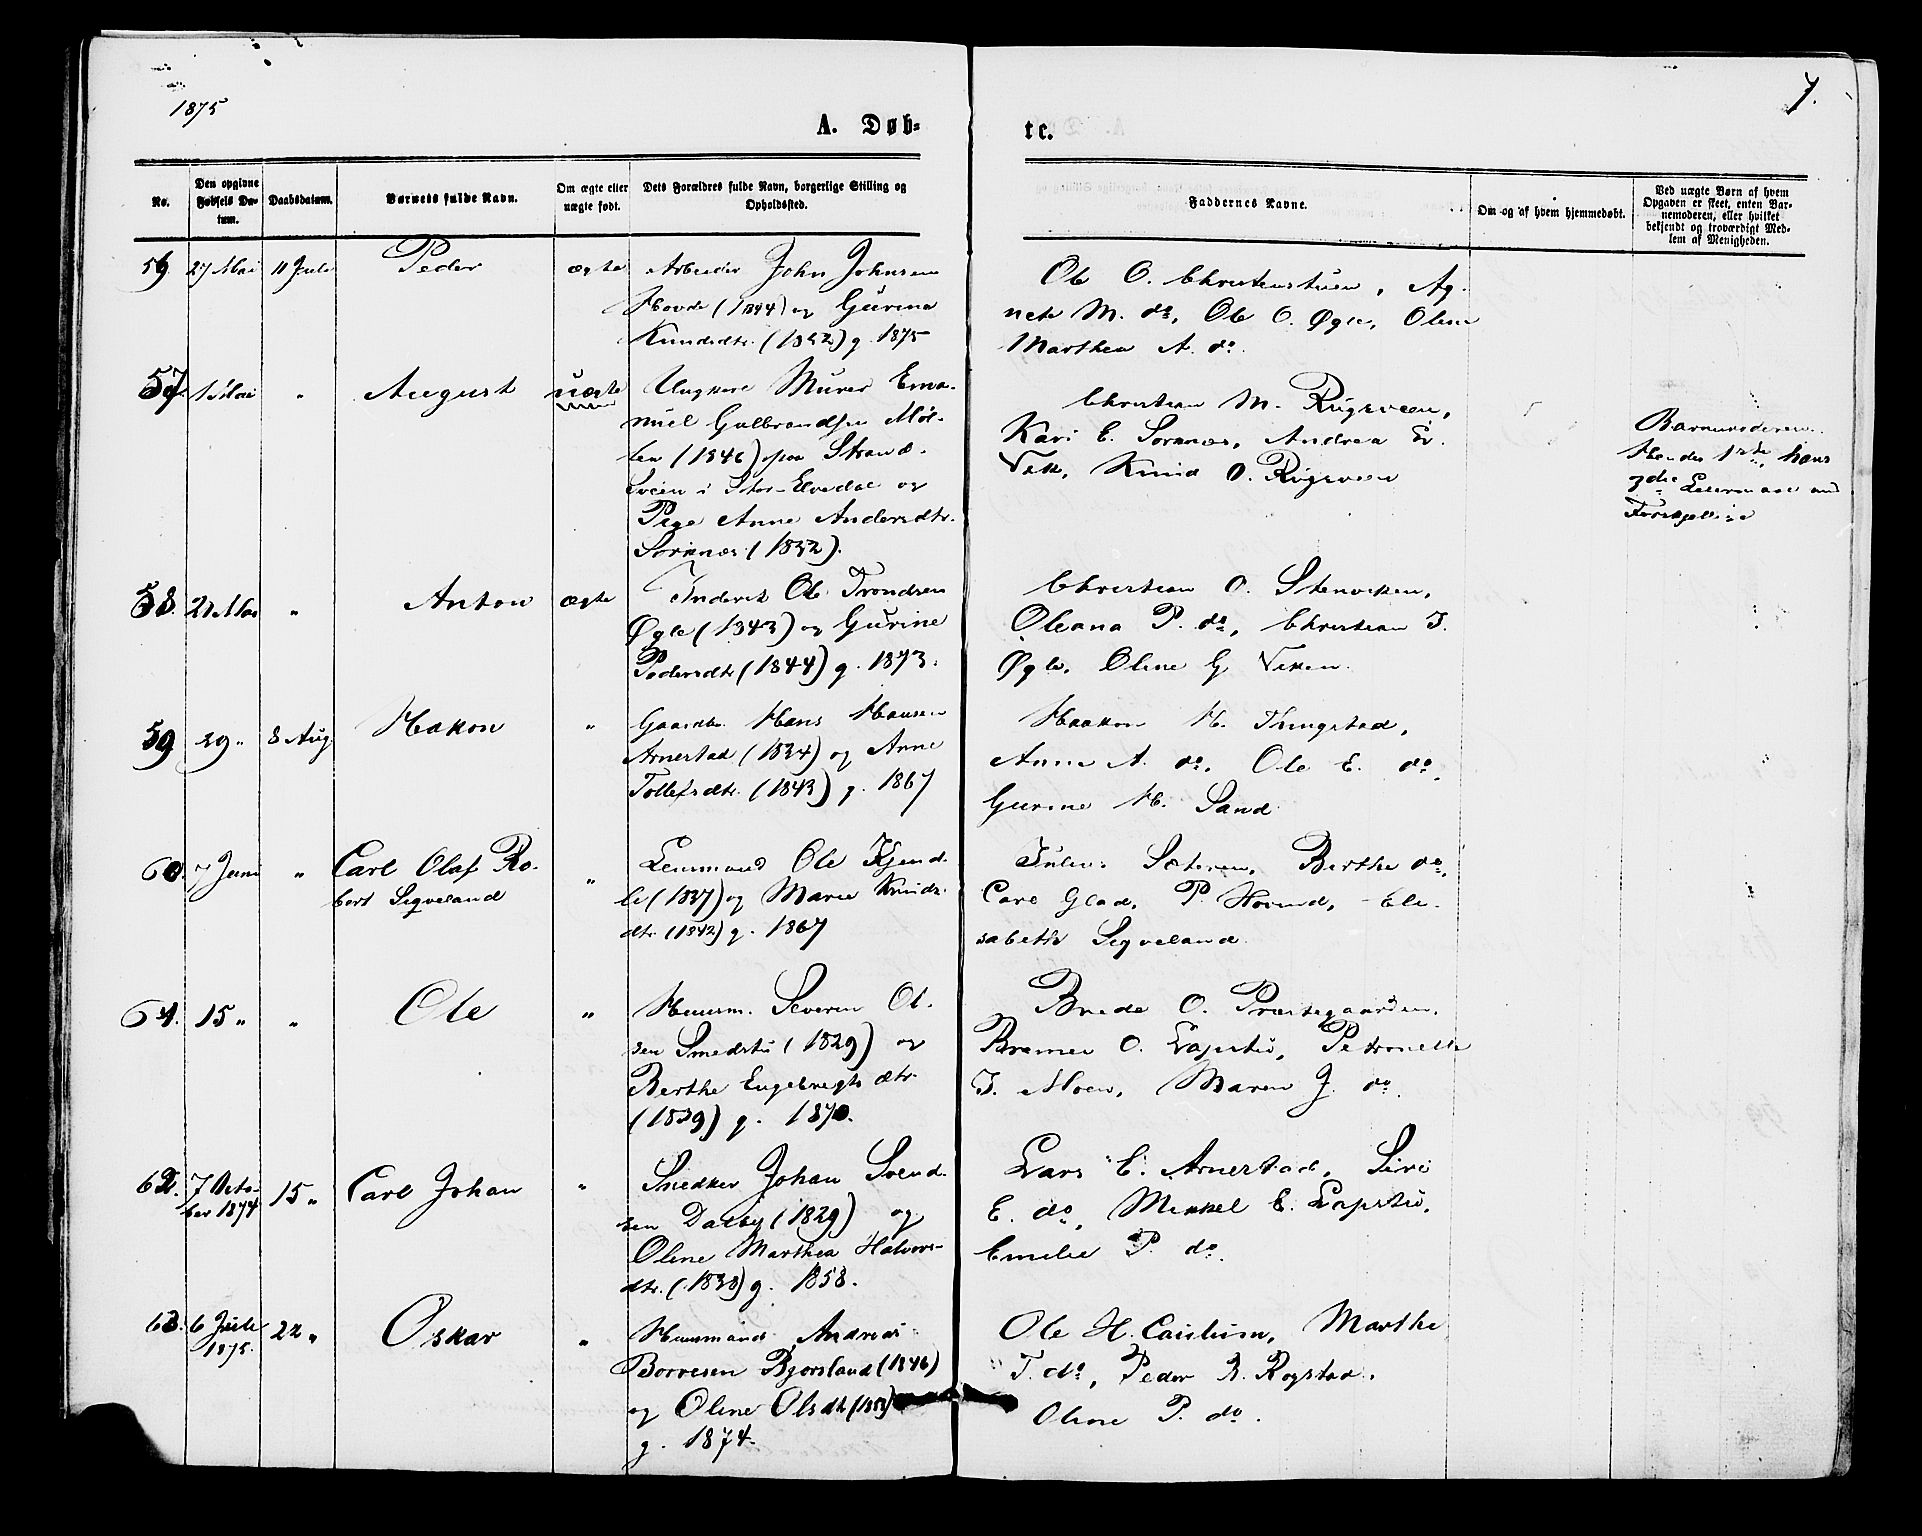 1875
7.
A. Døb-
te.
No.
Den opgivne Fødsels Datum.
Daabsdatum.
Barnets fulde Navn.
Om ægte eller uægte født.
Dets Forældres fulde Navn, borgerlige Stilling og Opholdssted.
Faddernes Navne.
Om og af hvem hjemmedøbt.
Ved uægte Børn af hvem Opgaven er skeet, enten Barnemoderen, eller hvilket bekjendt og troværdigt Medlem af Menigheden.
56 27 Mai 11 Juli Peder ægte Arbeider John Johnsen
Hovde (1844) og Gurina
Knudsdtr. (1852) g. 1875
Ole O. Christenstuen, Ag-
nete M. do, Ole O. Øgle, Oline
Marthea A. do.
57 1 Mai " August uægte Ungkarl Murer Ema-
nuel Gulbrandsen Møl-
len (1846) paa Strand-
sveen i Stor-Elvedal og
Pige Anne Andersdtr.
Sorknæs (1852).
Christian M. Rugsveen,
Kari E. Sorknæs, Andrea E.
Vek, Knud O. Rugsveen
Barnemoderen.
Hendes 1ste, hans
3die Leiermaal
58. 21 Mai " Anton ægte Inderst Ole Trondsen
Øgle (1843) og Gurine
Pedersdtr (1844) g. 1873.
Christian O. Stenviken,
Oleana P. do, Christian T.
Øgle, Oline G. Viken.
59 29 " 8 Aug. Hakon " Gaardbr. Hans Hansen
Arnestad (1834) og Anne
Tollefsdtr. (1843) g. 1867
Haakon H. Thingstad,
Anne A. do, Ole E. do,
Gurine H. Sand
60. 7 Juni " Carl Olaf Ro-
bert Siqveland
" Lensmand Ole Kjend-
lie (1837) og Marie Knuds-
dtr. (1842) g. 1867
Julius Sæteren, Berthe do,
Carl Glad, P. Hovind, Eli-
sabeth Siqveland
61. 15 " " Ole " Huusm. Severin Ol-
sen Smedstu (1829) og
Berthe Engebregtsdtr.
(1839) g. 1870.
Brede O. Præstegaarden,
O. Løpstu, Petronelle
J. Moen, Maren J. do.
62. 7 Octo-
ber 1874 15 " Carl Johan " Snedker Johan Svend-
sen Dalby (1829) og
Oline Marthea Halvors-
dtr. (1838) g. 1858.
Lars E. Arnestad, Siri
E. do, Mikkel E. Løpstu,
Emilie P. do.
63. 6 Juli
1875. 22 " Oskar " Huusmand Andreas
Borresen Bjørsland (1846)
og Oline Olsdtr (1853)
g. 1874.
Ole H. Caislum, Marthe
T. do, Peder R. Rogstad,
Oline P. do.